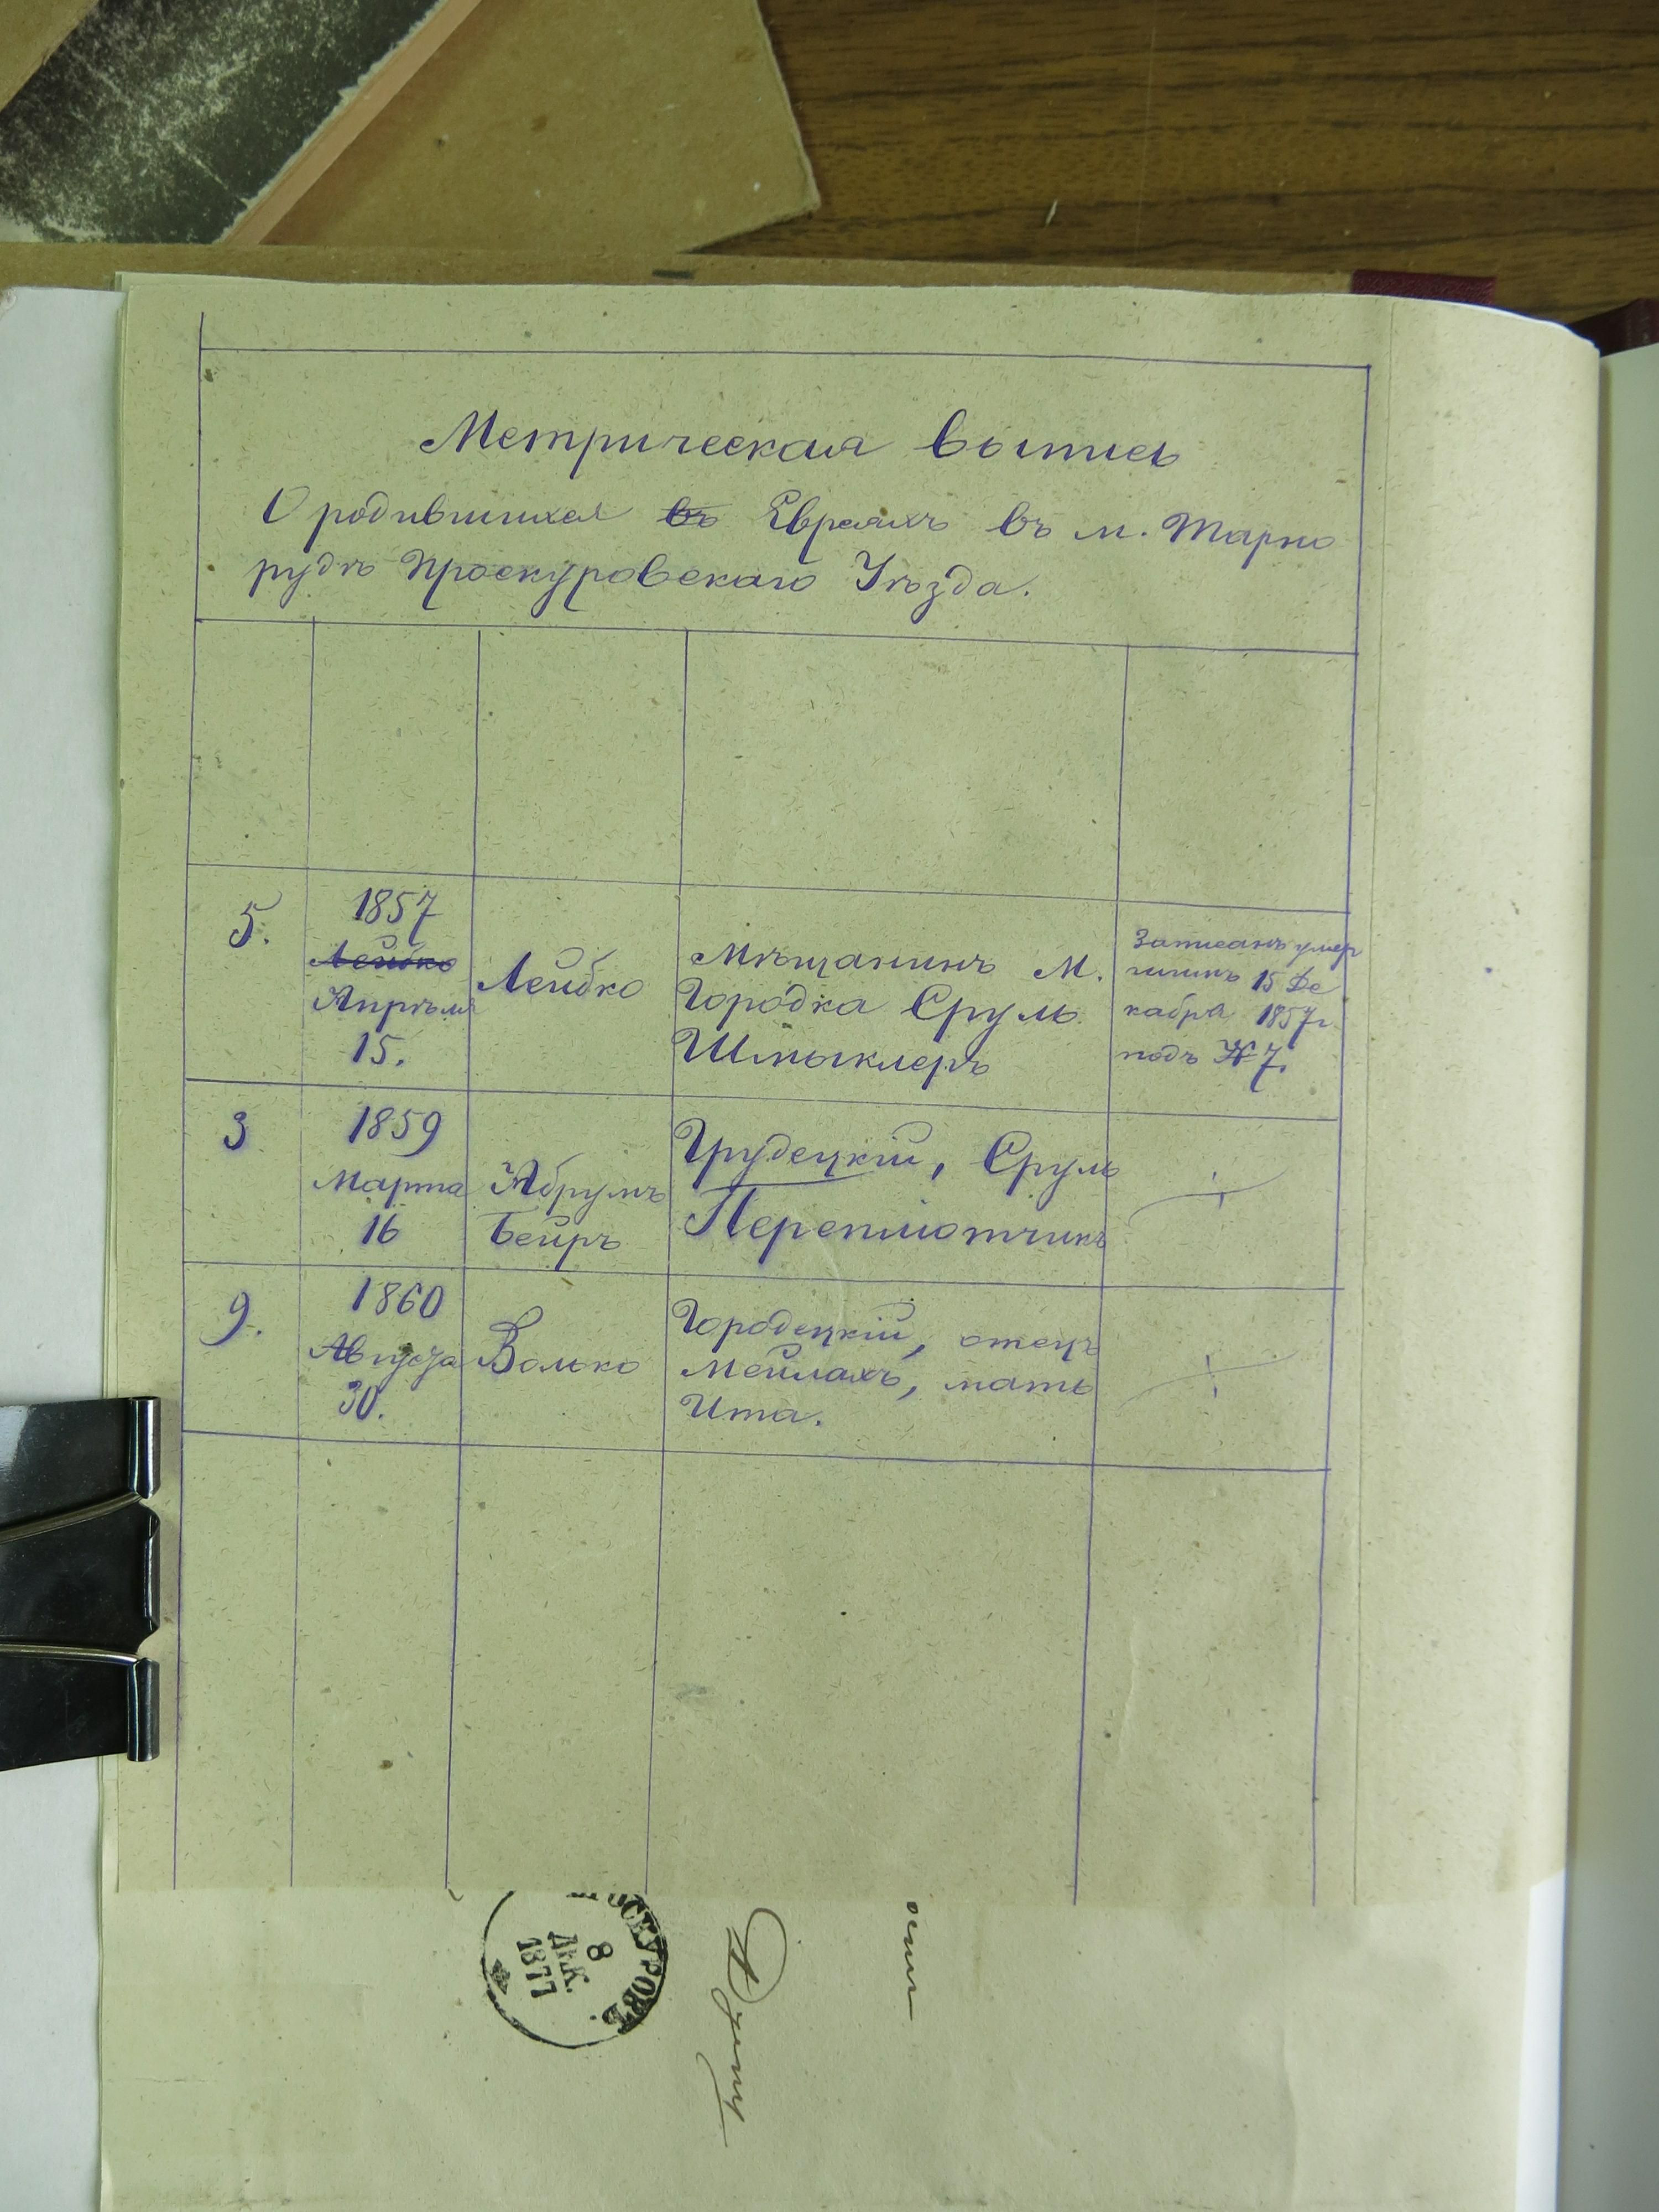 Метрическая выпись
О родившихся въ Евреяхъ въ м. Тарно
рудѣ Проскуровскаго Уѣзда.
5.
1857
Лейбко
Апрѣля
15.
Лейбко
Мѣщанинъ М.
Городка Сруль
Шмыклеръ
Записанъ умер
шимъ 15 Де
кабря 1857 г.
подъ № 7.
3
1859
Марта
16
Абрумъ
Бейръ
Грудецкій, Сруль
Перепліотчикъ
9.
1860
Августа
30.
Волько
Городецкій, отецъ
Мейлахъ, мать
Ита.
ОСКУРОВЪ
8
ДЕК.
1877
Думу